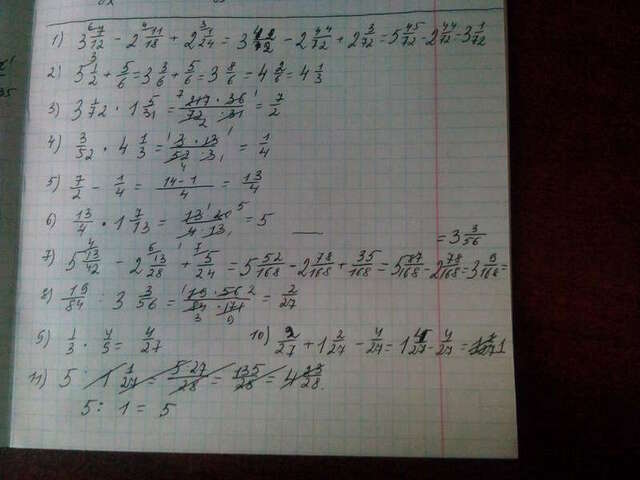 1) 3 7/12 - 2 11/18 + 2 1/24 = 3 42/72 - 2 44/72 + 2 3/72 = 5 45/72 - 2 44/72 = 3 1/72
2) 5 1/2 + 5/6 = 3 3/6 + 5/6 = 3 8/6 = 4 2/6 = 4 1/3
3) 3 1/72 · 1 5/31 = 217 · 36 / 72 · 31 = 7/2
4) 3/52 · 4 1/3 = 3 · 13 / 52 · 3 = 1/4
5) 7/2 - 1/4 = 14 - 1 / 4 = 13/4
6) 13/4 · 1 7/13 = 13 · 20 / 4 · 13 = 5
= 3 3/56
7) 5 13/42 - 2 13/28 + 5/24 = 5 52/168 - 2 78/168 + 35/168 = 5 87/168 - 2 78/168 = 3 9/168 =
8) 19/84 : 3 3/56 = 19 · 56 / 84 · 171 = 2/27
9) 1/3 · 4/9 = 4/27 10) 2/27 + 1 2/27 - 4/27 = 1 4/27 - 4/27 = 1
11) 5 : 1 1/27 = 5 · 27 / 28 = 135/28 = 4 23/28
5 : 1 = 5